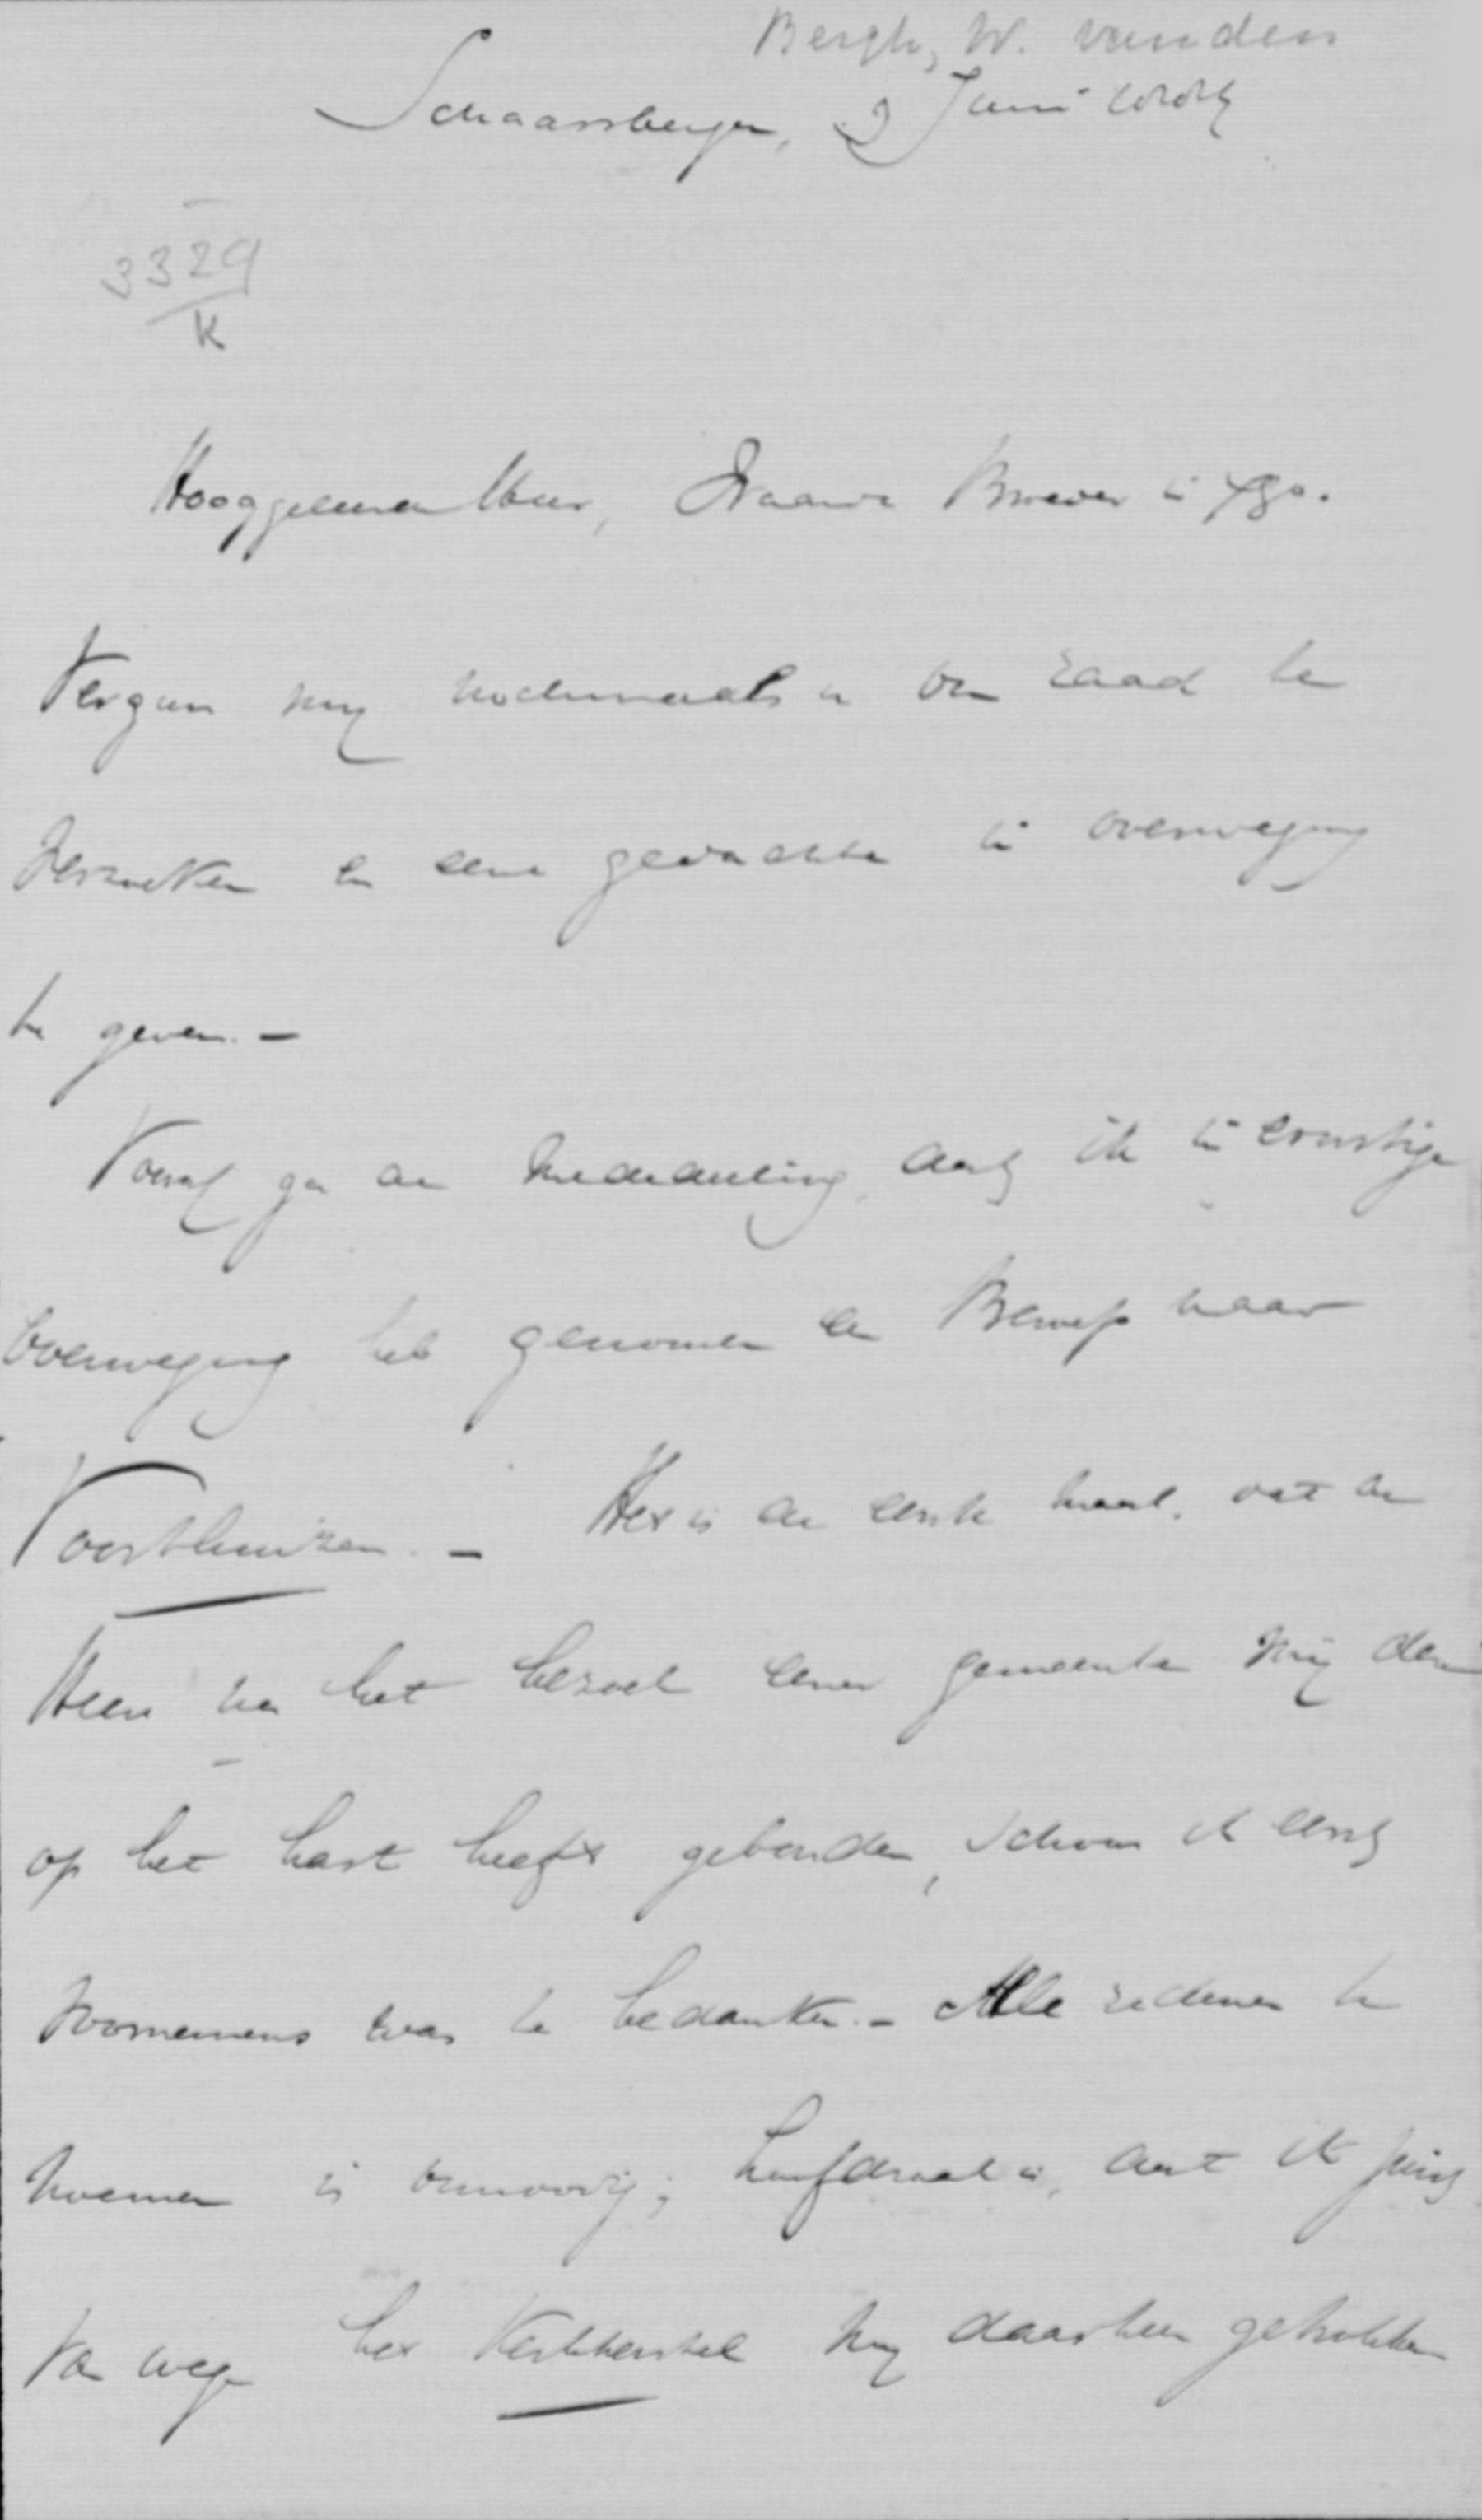 Bergh, W. van den
Schaarsbergen, 2 Juni
3329
K
Hooggeleerde Heer, Waarde Broeder in
Vergun mij nochmaals u om raad te
verzoeken en eene gedachte in overweging
te geven. —
Vooraf ga de mededeeling, dat ik in ernstige
overweging heb genomen de Beroep naar
Voorthuizen. — Het is de eerste maal, dat de
Heere na het bezoek eener gemeente mij den
op het hart heeft gebonden, schoon ik eerst
voornemens was te bedanken. — Alle redenen te
noemen is onnoodig; hoofdzaak is, dat ik juist
van wege het Kerkherstel mij daarheen getrokken